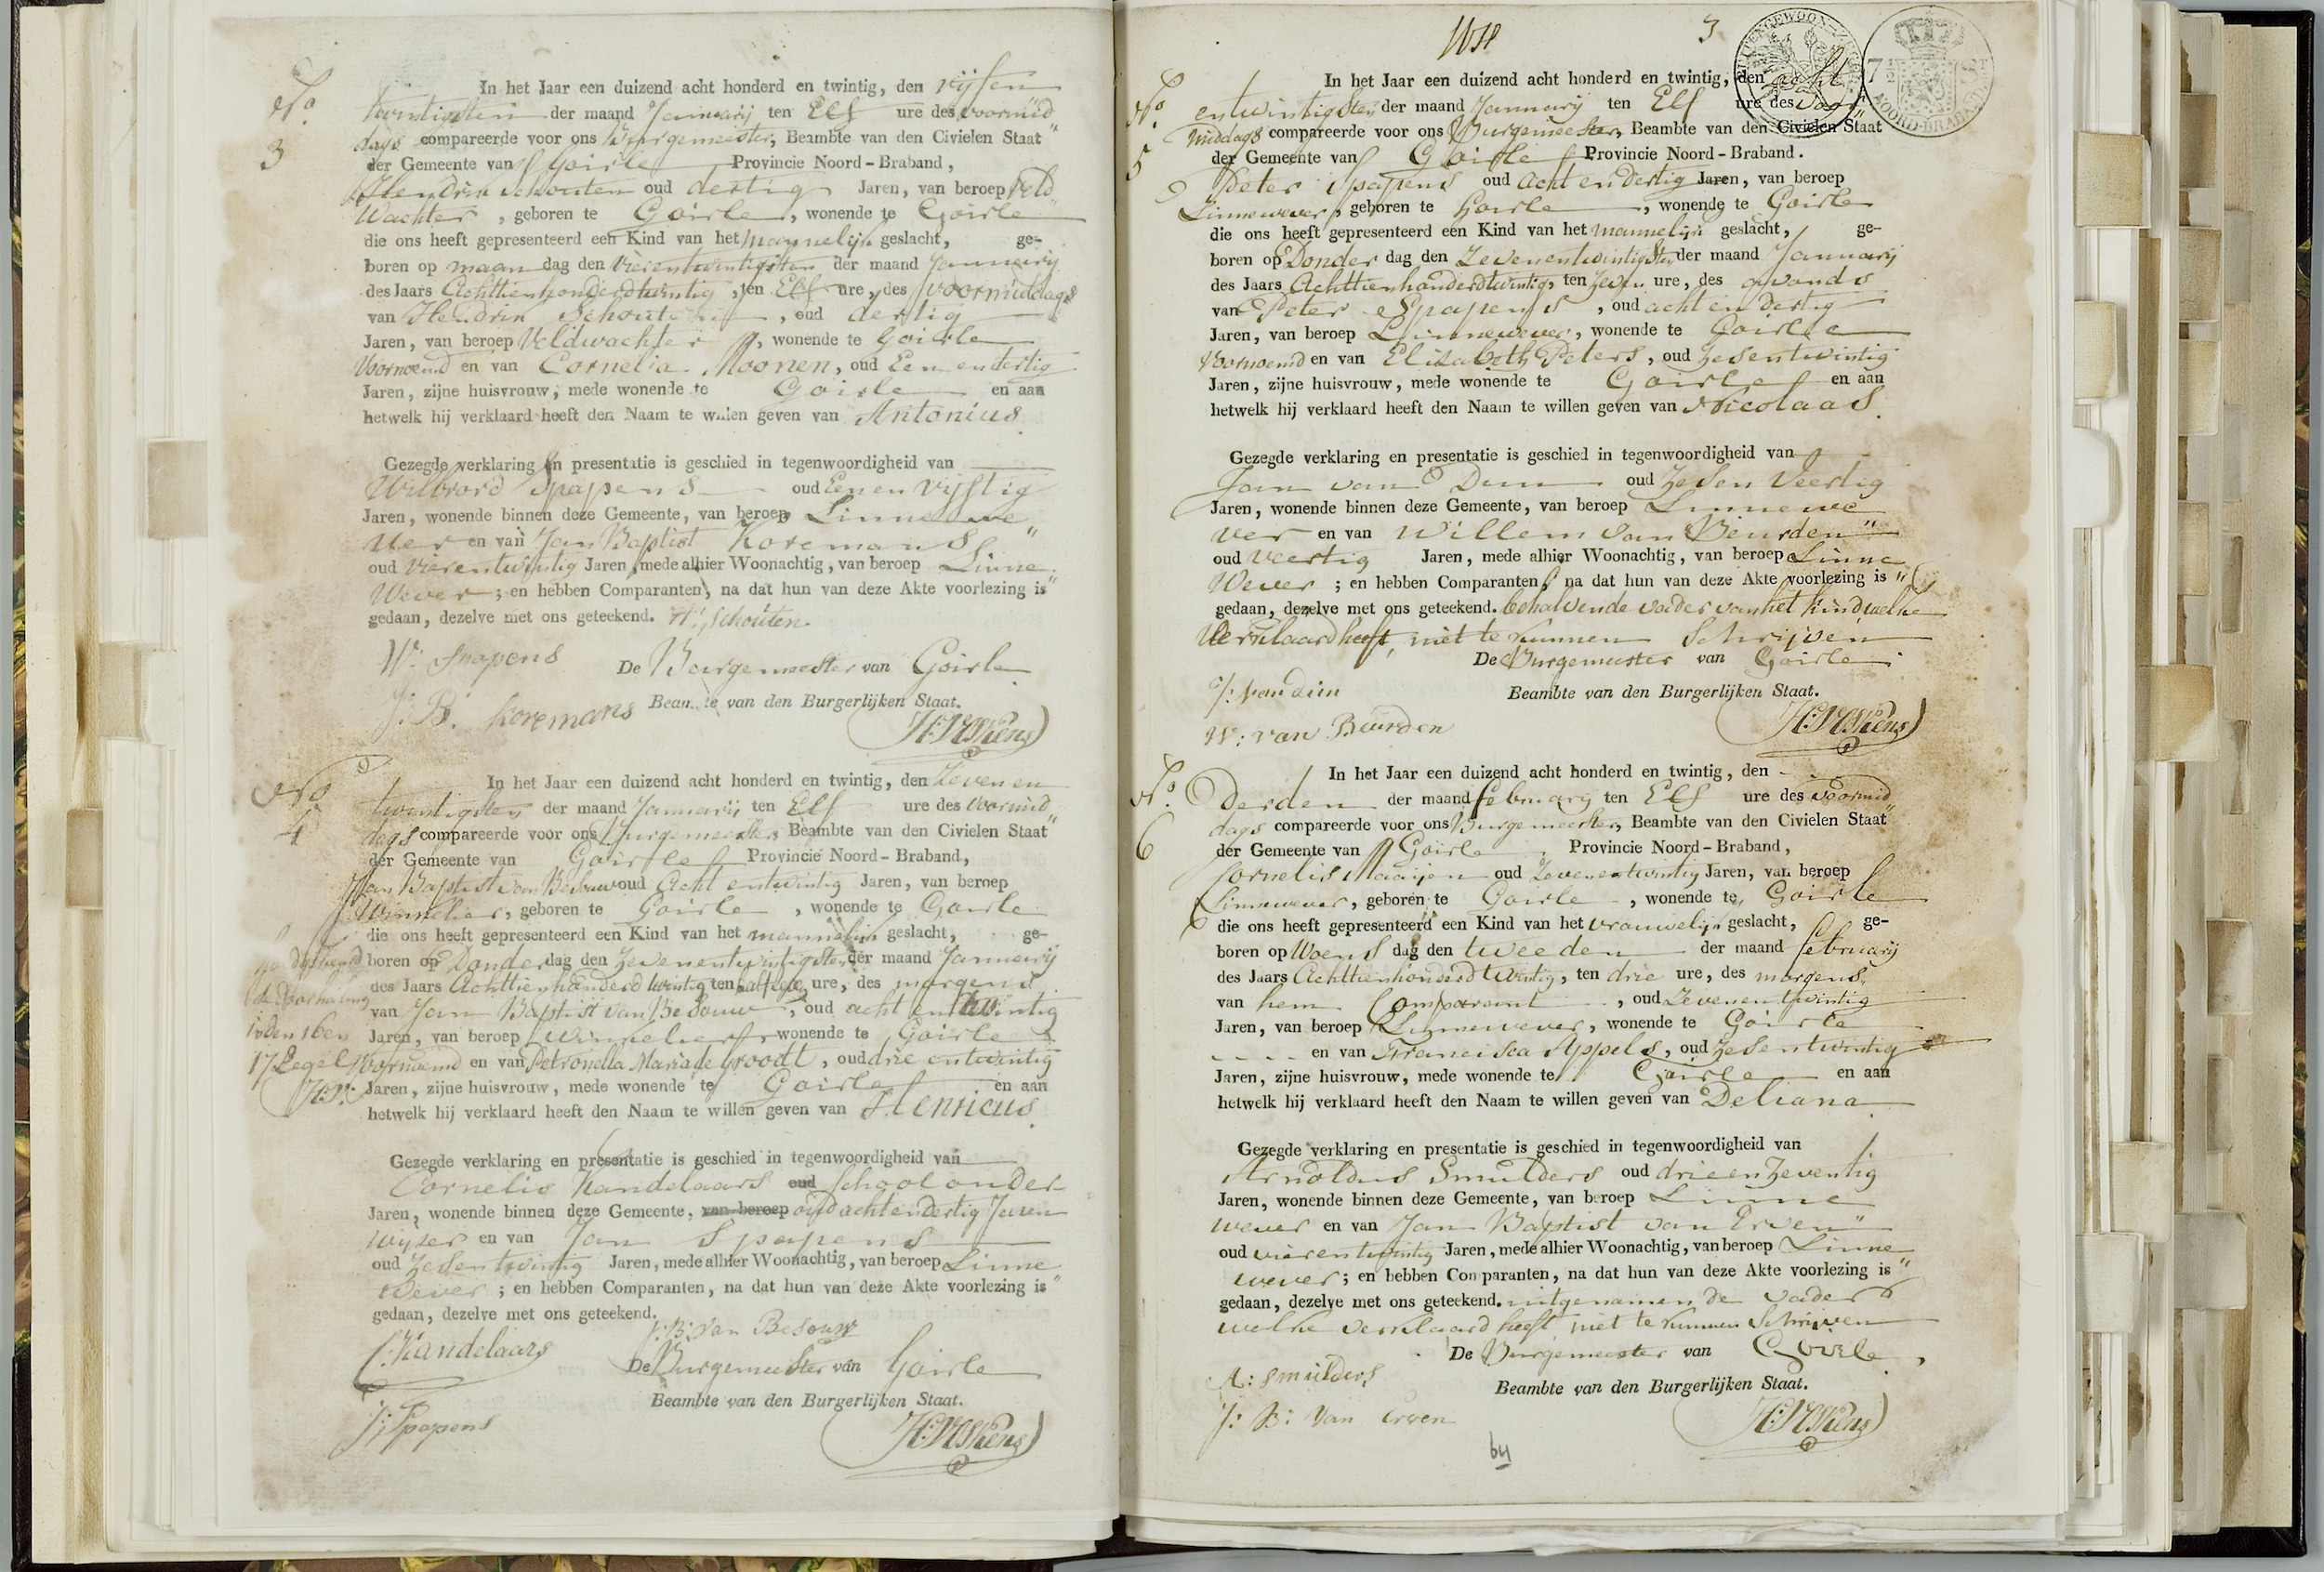 No 3
In het Jaar een duizend acht honderd en twintig, den vijfen
twintigsten der maand Januarij ten Elf ure des voormid
dags compareerde voor ons Burgemeester, Beambte van den Civielen Staat
der Gemeente van Goirle Provincie Noord-Braband,
Hendrik Schouten oud dertig Jaren, van beroep Veld
Wachter, geboren te Goirle, wonende te Goirle
die ons heeft gepresenteerd een Kind van het mannelijk geslacht, ge-
boren op maan dag den Vierentwintigsten der maand Januarij
des Jaars Achttienhonderdtwintig, ten Elf ure, des voormiddags
van Hendrik Schouten, oud dertig
Jaren, van beroep Veldwachter, wonende te Goirle
Voornoemd en van Cornelia Moonen, oud Een endertig
Jaren, zijne huisvrouw, mede wonende te Goirle en aan
hetwelk hij verklaard heeft den Naam te willen geven van Antonius.
Gezegde verklaring en presentatie is geschied in tegenwoordigheid van
Wilbrord Spapens oud Eenen Vijftig
Jaren, wonende binnen deze Gemeente, van beroep Linnewe
ver en van Jan Baptist Koremans
oud vierentwintig Jaren, mede alhier Woonachtig, van beroep Linne
Wever; en hebben Comparanten, na dat hun van deze Akte voorlezing is
gedaan, dezelve met ons geteekend. H: Schouten
W: Spapens De Burgemeester van Goirle
J: B. Koremans Beambte van den Burgerlijken Staat.
No 4
In het Jaar een duizend acht honderd en twintig, den Zevenen
twintigsten der maand Januarij ten Elf ure des Voormid
dags compareerde voor ons Burgemeester, Beambte van den Civielen Staat
der Gemeente van Goirle Provincie Noord-Braband,
Jan Baptist van Besouw oud Acht entwintig Jaren, van beroep
Winnelier, geboren te Goirle, wonende te Goirle
die ons heeft gepresenteerd een Kind van het mannelijk geslacht, ge-
boren op Donder dag den Zevenentwintigsten der maand Januarij
des Jaars Achttienhonderd twintig ten half ure, des morgens
van Jan Baptist van Besouw, oud acht en twintig
Jaren, van beroep Winnelier wonende te Goirle
Voornoemd en van Petronella Maria de Groodt, oud drie entwintig
Jaren, zijne huisvrouw, mede wonende te Goirle en aan
hetwelk hij verklaard heeft den Naam te willen geven van Henricus.
de Doorhaling
in den 16en
17 Regel
Gezegde verklaring en presentatie is geschied in tegenwoordigheid van
Cornelis Kandelaars oud School onder
Jaren, wonende binnen deze Gemeente, van beroep oud achtendertig Jaren
wijzer en van Jan Spapens
oud Zesentwintig Jaren, mede alhier Woonachtig, van beroep Linne
Wever; en hebben Comparanten, na dat hun van deze Akte voorlezing is
gedaan, dezelve met ons geteekend.
J: B: Van Besouw
C: Kandelaars
De Burgemeester van Goirle
Beambte van den Burgerlijken Staat.
J: Spapens
3
No 5
In het Jaar een duizend acht honderd en twintig, den acht
entwintigsten der maand Januarij ten Elf ure des Voor
middags compareerde voor ons Burgemeester, Beambte van den Civielen Staat
der Gemeente van Goirle Provincie Noord-Braband.
Peter Spapens oud Acht en dertig Jaren, van beroep
Linnewever, geboren te Goirle, wonende te Goirle
die ons heeft gepresenteerd een Kind van het mannelijk geslacht, ge-
boren op Donder dag den Zevenentwintigsten der maand Januarij
des Jaars Achttienhonderdtwintig, ten Zeven ure, des avonds
van Peter Spapens, oud acht en dertig
Jaren, van beroep Linnewever, wonende te Goirle
Voornoemd en van Elisabeth Peters, oud Zesentwintig
Jaren, zijne huisvrouw, mede wonende te Goirle en aan
hetwelk hij verklaard heeft den Naam te willen geven van Nicolaas.
Gezegde verklaring en presentatie is geschied in tegenwoordigheid van
Jan van Dun oud Zesen Veertig
Jaren, wonende binnen deze Gemeente, van beroep Linnewe
ver en van Willem van Beurden
oud Veertig Jaren, mede alhier Woonachtig, van beroep Linne
Wever; en hebben Comparanten, na dat hun van deze Akte voorlezing is
gedaan, dezelve met ons geteekend. behalvende vader van het kind welke
Verklaard heeft, niet te kunnen Schrijven
De Burgemeester van Goirle
J: van dun Beambte van den Burgerlijken Staat.
W: van Beurden
No 6
In het Jaar een duizend acht honderd en twintig, den
Derden der maand february ten Elf ure des Voormid
dags compareerde voor ons Burgemeester, Beambte van den Civielen Staat
der Gemeente van Goirle Provincie Noord-Braband,
Cornelis Maaijen oud Zevenentwintig Jaren, van beroep
Linnewever, geboren te Goirle, wonende te Goirle
die ons heeft gepresenteerd een Kind van het vrouwelijk geslacht, ge-
boren op Woens dag den tweeden der maand februarij
des Jaars Achttienhonderd twintig, ten drie ure, des morgens
van hem Comparant, oud Zevenentwintig
Jaren, van beroep Linnewever, wonende te Goirle
en van Francisca Appels, oud Zesentwintig
Jaren, zijne huisvrouw, mede wonende te Goirle en aan
hetwelk hij verklaard heeft den Naam te willen geven van Deliana
Gezegde verklaring en presentatie is geschied in tegenwoordigheid van
Arnoldus Smulders oud drieenzeventig
Jaren, wonende binnen deze Gemeente, van beroep Linne
wever en van Jan Baptist van Erven
oud vierentwintig Jaren, mede alhier Woonachtig, van beroep Linne
wever; en hebben Comparanten, na dat hun van deze Akte voorlezing is
gedaan, dezelve met ons geteekend. uitgenomen de vader
welke verklaard heeft niet te kunnen Schrijven
De Burgemeester van Goirle,
A: Smulders Beambte van den Burgerlijken Staat.
J: B: Van Erven